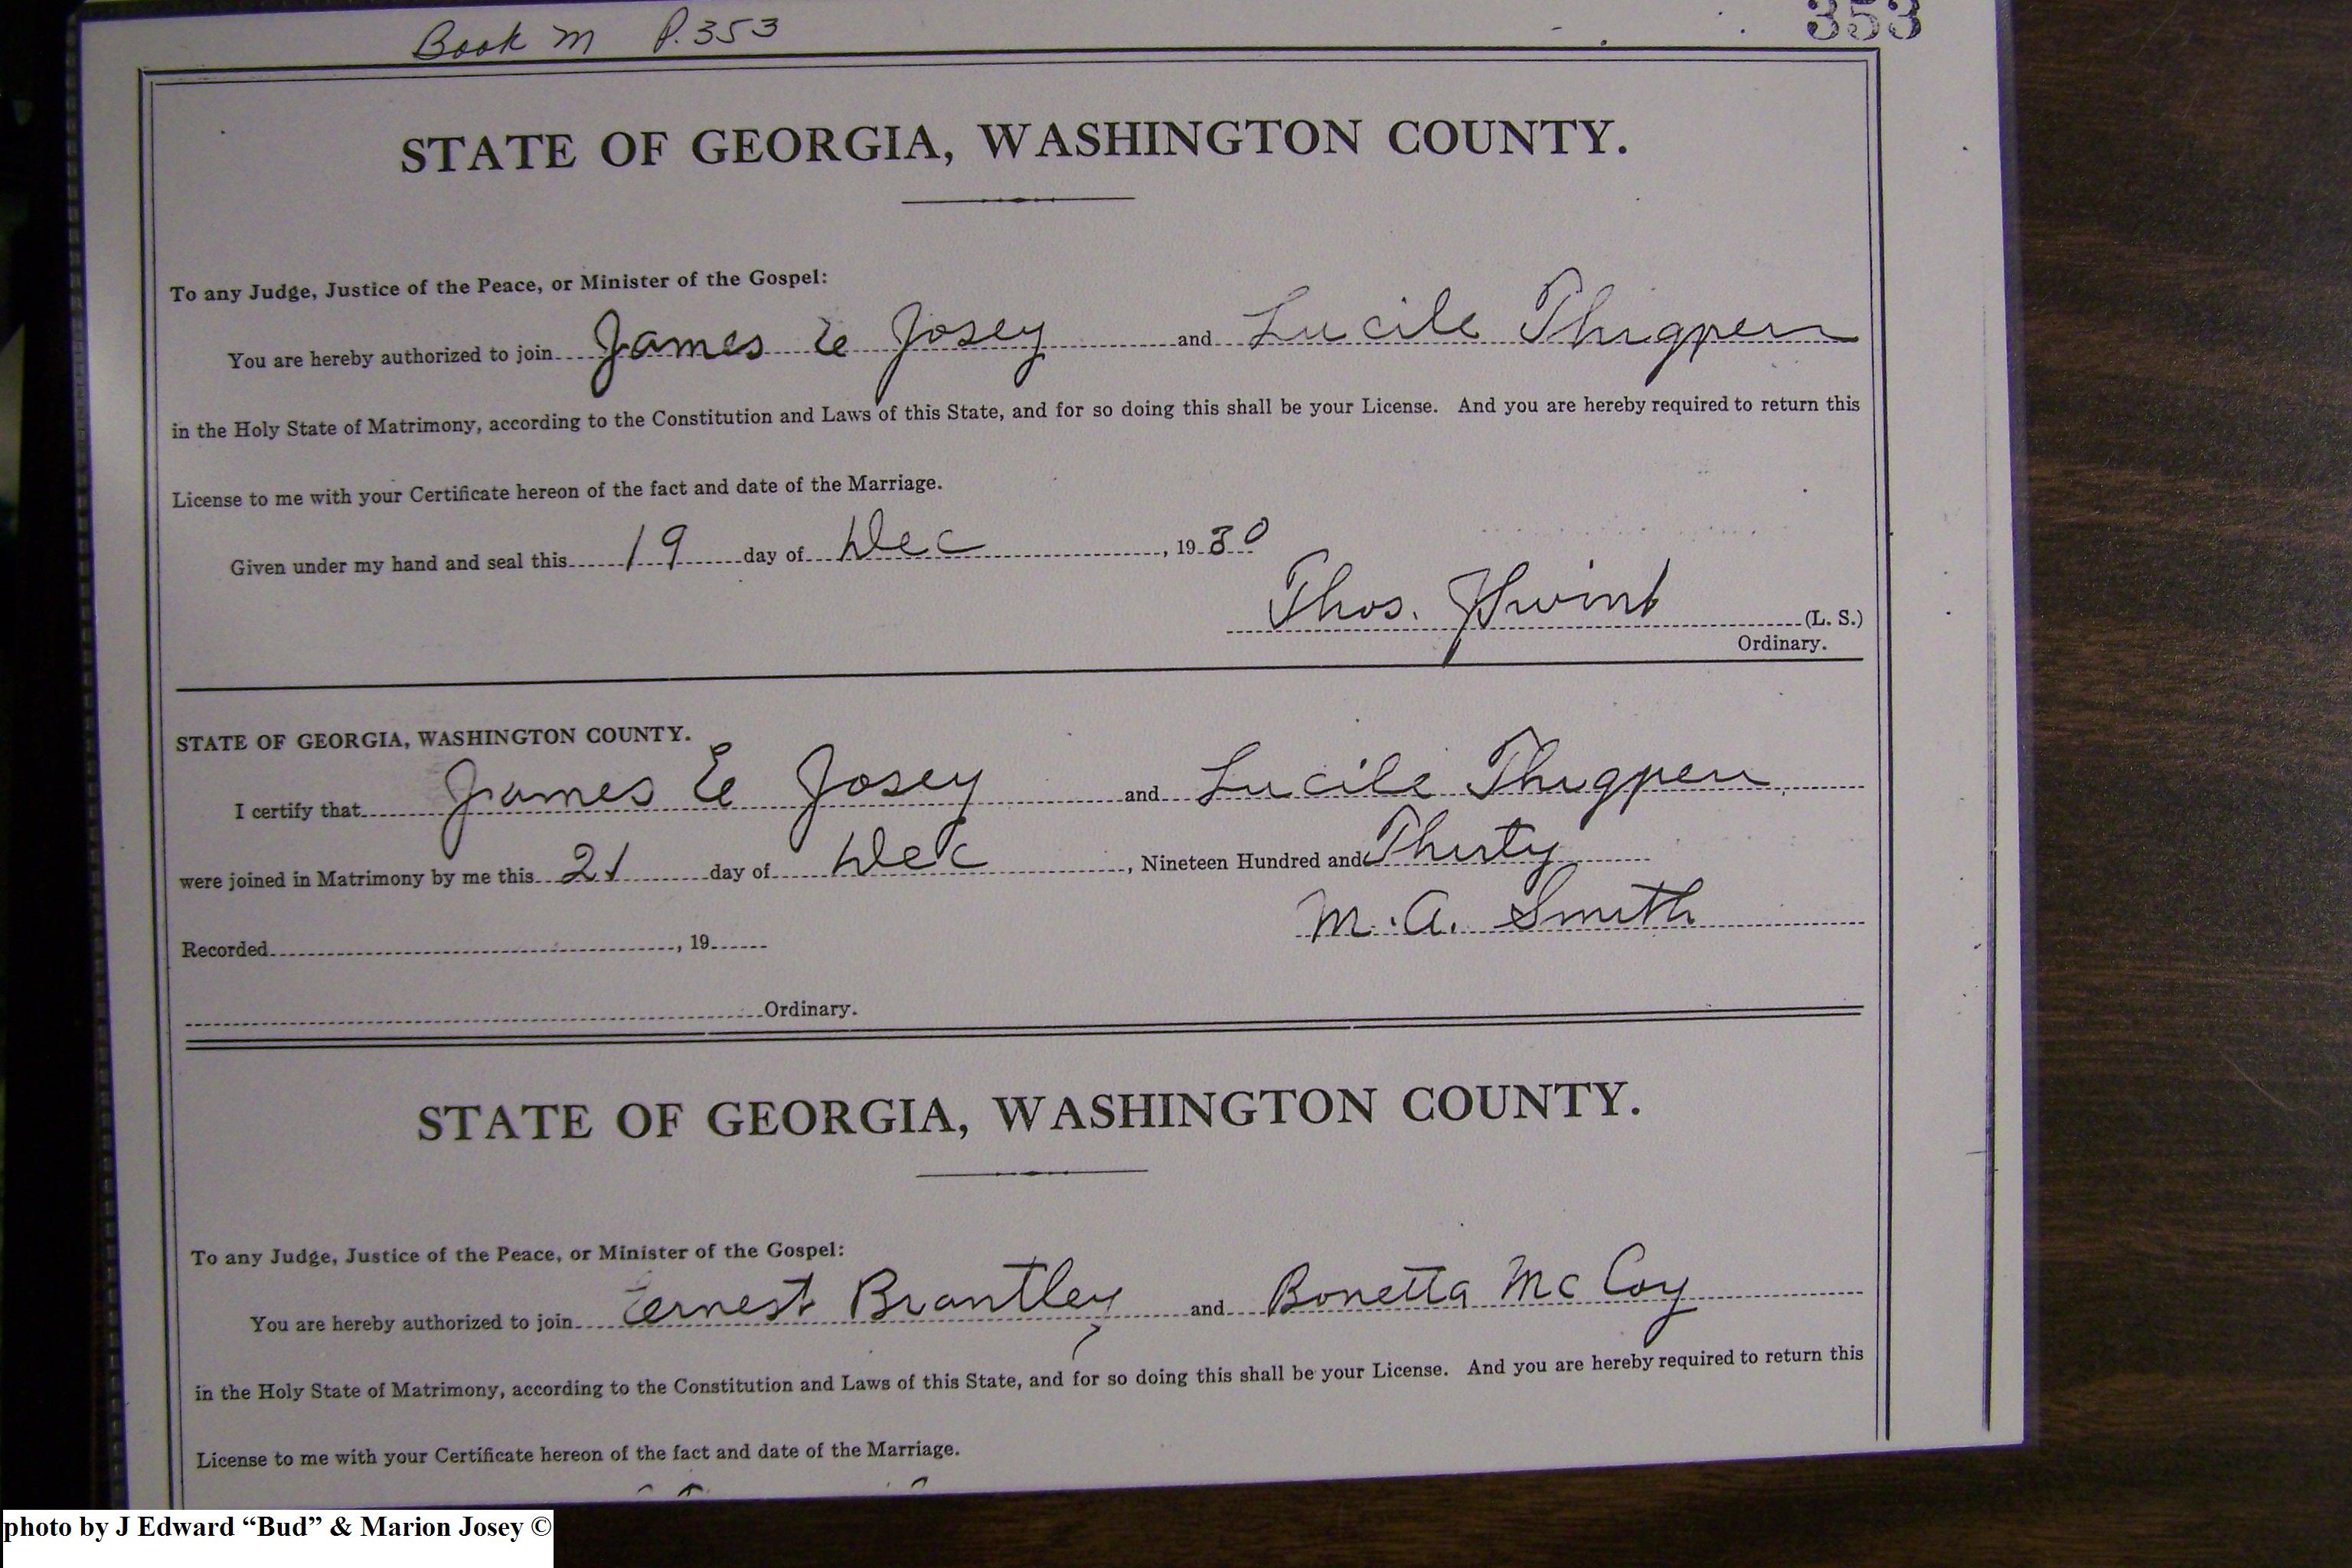 Book M P. 353
353
STATE OF GEORGIA, WASHINGTON COUNTY.
To any Judge, Justice of the Peace, or Minister of the Gospel:
You are hereby authorized to join James E Josey and Lucile Thigpen
in the Holy State of Matrimony, according to the Constitution and Laws of this State, and for so doing this shall be your License. And you are hereby required to return this
License to me with your Certificate hereon of the fact and date of the Marriage.
Given under my hand and seal this 19 day of Dec, 1930
Thos. J Swint (L. S.)
Ordinary.
STATE OF GEORGIA, WASHINGTON COUNTY.
I certify that James E Josey and Lucile Thigpen
were joined in Matrimony by me this 21 day of Dec, Nineteen Hundred and Thirty
M. A. Smith
Recorded, 19
Ordinary.
STATE OF GEORGIA, WASHINGTON COUNTY.
To any Judge, Justice of the Peace, or Minister of the Gospel:
You are hereby authorized to join Ernest Brantley and Bonetta McCoy
in the Holy State of Matrimony, according to the Constitution and Laws of this State, and for so doing this shall be your License. And you are hereby required to return this
License to me with your Certificate hereon of the fact and date of the Marriage.
photo by J Edward “Bud” & Marion Josey ©